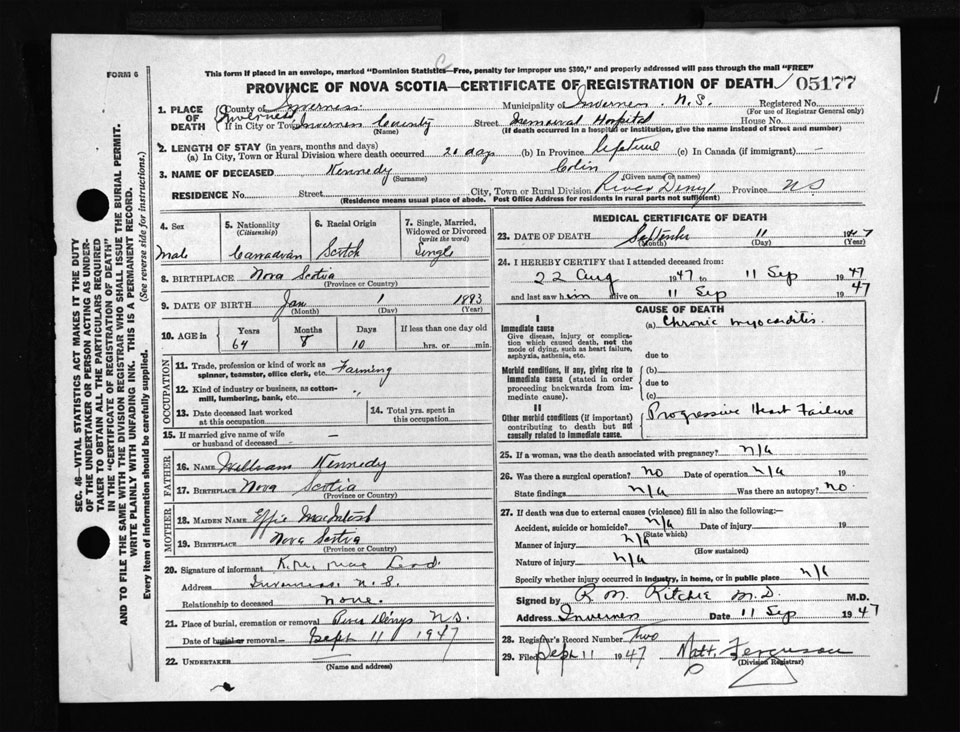 FORM 6
This form if placed in an envelope, marked "Dominion Statistics—Free, penalty for improper use $300," and properly addressed will pass through the mail "FREE"
PROVINCE OF NOVA SCOTIA—CERTIFICATE OF REGISTRATION OF DEATH 05177
1. PLACE OF DEATH County of Inverness Municipality of Inverness N.S. Registered No.
(For use of Registrar General only)
Inverness If in City or Town Inverness County Street Memorial Hospital House No.
(Name) (If death occurred in a hospital or institution, give the name instead of street and number)
2. LENGTH OF STAY (in years, months and days)
(a) In City, Town or Rural Division where death occurred 20 days (b) In Province Lifetime (c) In Canada (if immigrant) —
3. NAME OF DECEASED Kennedy Colin
(Surname) (Given name or names)
RESIDENCE No. Street City, Town or Rural Division River Denys Province NS
(Residence means usual place of abode. Post Office Address for residents in rural parts not sufficient)
4. Sex Male
5. Nationality (Citizenship) Canadian
6. Racial Origin Scotch
7. Single, Married, Widowed or Divorced (write the word) Single
8. BIRTHPLACE Nova Scotia
(Province or Country)
9. DATE OF BIRTH Jan 1 1883
(Month) (Day) (Year)
10. AGE in Years Months Days If less than one day old
64 8 10 hrs. or min.
OCCUPATION
11. Trade, profession or kind of work as spinner, teamster, office clerk, etc. Farming
12. Kind of industry or business, as cotton-mill, lumbering, bank, etc. "
13. Date deceased last worked at this occupation
14. Total yrs. spent in this occupation
15. If married give name of wife or husband of deceased —
FATHER
16. NAME William Kennedy
17. BIRTHPLACE Nova Scotia
(Province or Country)
MOTHER
18. MAIDEN NAME Effie MacIntosh
19. BIRTHPLACE Nova Scotia
(Province or Country)
20. Signature of informant Mac Leod
Address Inverness N.S.
Relationship to deceased none.
21. Place of burial, cremation or removal River Denys N.S.
Date of burial or removal Sept 11 1947
22. UNDERTAKER —
(Name and address)
MEDICAL CERTIFICATE OF DEATH
23. DATE OF DEATH September 11 1947
(Month) (Day) (Year)
24. I HEREBY CERTIFY that I attended deceased from:
22 Aug 1947 to 11 Sep 1947
and last saw him alive on 11 Sep 1947
CAUSE OF DEATH
I
Immediate cause (a) Chronic myocarditis.
Give disease, injury or complication which caused death, not the mode of dying, such as heart failure, asphyxia, asthenia, etc.
due to
Morbid conditions, if any, giving rise to immediate cause (stated in order proceeding backwards from immediate cause).
(b)
due to
(c)
II
Other morbid conditions (if important) contributing to death but not causally related to immediate cause.
Progressive Heart Failure
25. If a woman, was the death associated with pregnancy? N/A
26. Was there a surgical operation? No Date of operation N/A 19
State findings N/A Was there an autopsy? No
27. If death was due to external causes (violence) fill in also the following:—
Accident, suicide or homicide? N/A Date of injury 19
(State which)
Manner of injury N/A
(How sustained)
Nature of injury N/A
Specify whether injury occurred in industry, in home, or in public place N/A
Signed by R M. Ritchie M.D. M.D.
Address Inverness Date 11 Sep 1947
28. Registrar's Record Number Two
29. Filed Sept 11 1947 Matt. Ferguson
(Division Registrar)
SEC. 46—VITAL STATISTICS ACT MAKES IT THE DUTY
OF THE UNDERTAKER OR PERSON ACTING AS UNDER-
TAKER TO OBTAIN ALL THE PARTICULARS REQUIRED
IN THE "CERTIFICATE OF REGISTRATION OF DEATH"
AND TO FILE THE SAME WITH THE DIVISION REGISTRAR WHO SHALL ISSUE THE BURIAL PERMIT.
WRITE PLAINLY WITH UNFADING INK. THIS IS A PERMANENT RECORD.
Every item of information should be carefully supplied. (See reverse side for instructions.)